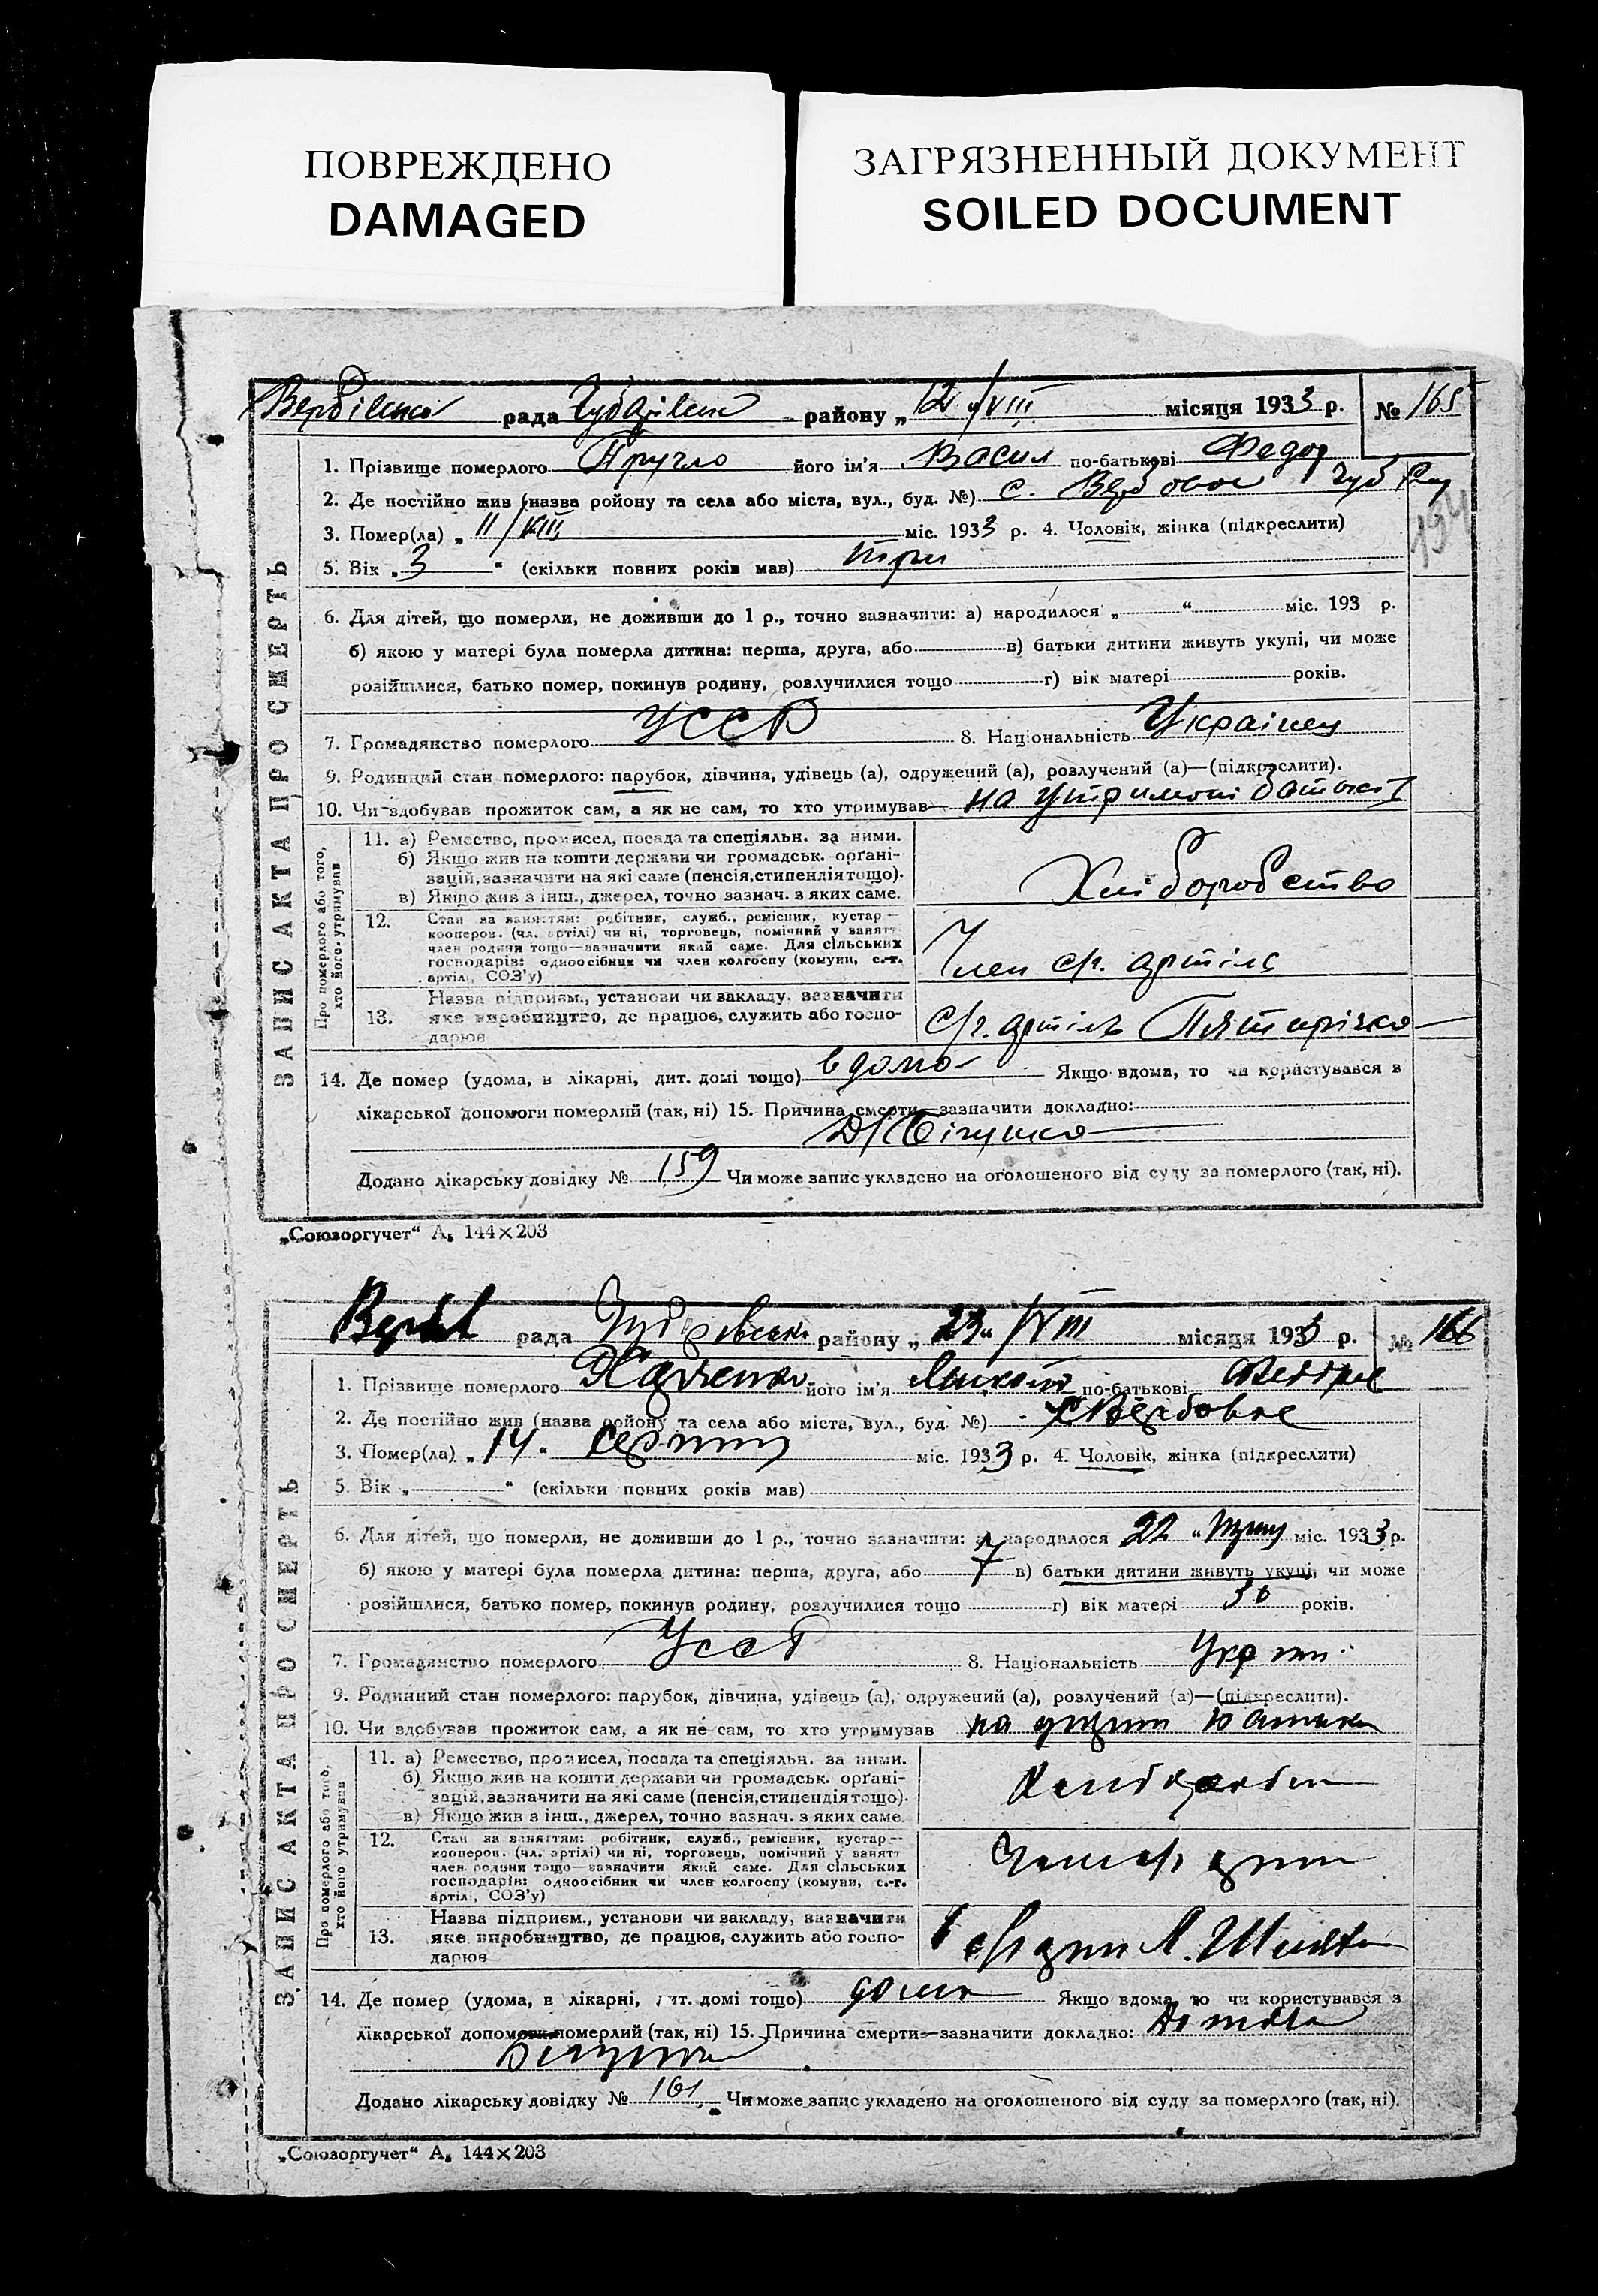 ПОВРЕЖДЕНО
DAMAGED
ЗАГРЯЗНЕННЫЙ ДОКУМЕНТ
SOILED DOCUMENT
рада району „12“/VIII місяця 1933 р. № 165
ЗАПИС АКТА ПРО СМЕРТЬ
1. Прізвище померлого його ім'я Васил по-батькові Федор
2. Де постійно жив (назва ройону та села або міста, вул., буд. №) с.
3. Помер(ла) „ 11/VIII міс. 1933 р. 4. Чоловік, жінка (підкреслити)
194
5. Вік „3“ (скільки повних років мав) три
6. Для дітей, що померли, не доживши до 1 р., точно зазначити: а) народилося „ “ міс. 193 р.
б) якою у матері була померла дитина: перша, друга, або в) батьки дитини живуть укупі, чи може
розійшлися, батько помер, покинув родину, розлучилися тощо г) вік матері років.
7. Громадянство померлого УССР 8. Національність Українец
9. Родинний стан померлого: парубок, дівчина, удівець (а), одружений (а), розлучений (а)—(підкреслити).
10. Чи здобував прожиток сам, а як не сам, то хто утримував— на
Про померлого або того, хто його утримував
11. а) Ремество, промисел, посада та спеціяльн. за ними.
б) Якщо жив на кошти держави чи громадськ. орґані-
зацій, зазначити на які саме (пенсія, стипендія тощо).
в) Якщо жив з інш., джерел, точно зазнач. з яких саме.
Хліборобство
12. Стан за заняттям: робітник, служб., ремісник, кустар—
кооперов. (чл. артілі) чи ні, торговець, помічний у занятт
член родини тощо—зазначити який саме. Для сільських
господарів: одноосібник чи член колгоспу (комуни, с.-г.
артілі, СОЗ'у)
Член с/г. артілі
13. Назва підприєм., установи чи закладу, зазначити
яке виробництво, де працює, служить або госпо-
дарює
с/г. артіль Пятирічка
14. Де помер (удома, в лікарні, дит. домі тощо) вдома Якщо вдома, то чи користувався з
лікарської допомоги померлий (так, ні) 15. Причина смерти—зазначити докладно:
Додано лікарську довідку № 159 Чи може запис укладено на оголошеного від суду за померлого (так, ні).
„Союзоргучет“ А₅ 144×203
рада району „23“/VIII місяця 1933 р. № 166
ЗАПИС АКТА ПРО СМЕРТЬ
1. Прізвище померлого його ім'я по-батькові
2. Де постійно жив (назва ройону та села або міста, вул., буд. №) с
3. Помер(ла) „14“ міс. 1933 р. 4. Чоловік, жінка (підкреслити)
5. Вік „ “ (скільки повних років мав)
6. Для дітей, що померли, не доживши до 1 р., точно зазначити: а) народилося 22 “ міс. 1933 р.
б) якою у матері була померла дитина: перша, друга, або 7 в) батьки дитини живуть укупі, чи може
розійшлися, батько помер, покинув родину, розлучилися тощо г) вік матері років.
7. Громадянство померлого УССР 8. Національність
9. Родинний стан померлого: парубок, дівчина, удівець (а), одружений (а), розлучений (а)—(підкреслити).
10. Чи здобував прожиток сам, а як не сам, то хто утримував на
Про померлого або того, хто його утримував
11. а) Ремество, промисел, посада та спеціяльн. за ними.
б) Якщо жив на кошти держави чи громадськ. орґані-
зацій, зазначити на які саме (пенсія, стипендія тощо).
в) Якщо жив з інш., джерел, точно зазнач. з яких саме.
12. Стан за заняттям: робітник, служб., ремісник, кустар—
кооперов. (чл. артілі) чи ні, торговець, помічний у занятт
член родини тощо—зазначити який саме. Для сільських
господарів: одноосібник чи член колгоспу (комуни, с.-г.
артілі, СОЗ'у)
13. Назва підприєм., установи чи закладу, зазначити
яке виробництво, де працює, служить або госпо-
дарює
14. Де помер (удома, в лікарні, дит. домі тощо) дома Якщо вдома, то чи користувався з
лікарської допомоги померлий (так, ні) 15. Причина смерти—зазначити докладно:
Додано лікарську довідку № 161 Чи може запис укладено на оголошеного від суду за померлого (так, ні).
„Союзоргучет“ А₅ 144×203